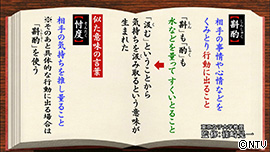 【斟酌】
相手の事情や心情などを
くみとり行動に出ること
「斟」も「酌」も
水などを量って すくいとること
「汲む」ということから
気持ちを汲み取るという意味が
生まれた
似た意味の言葉
【忖度】
相手の気持ちを推し量ること
※そのあと具体的な行動に出る場合は
斟酌を使う
©NTV